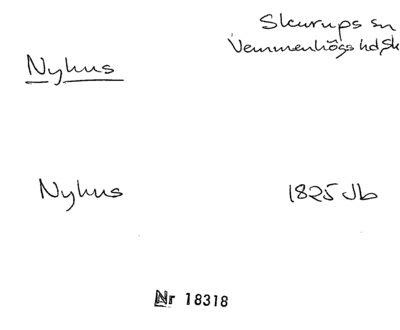 Skurups sn
Vemmenhögs hd, Sk
Nyhus
Nyhus 1825 Jb
Nr 18318